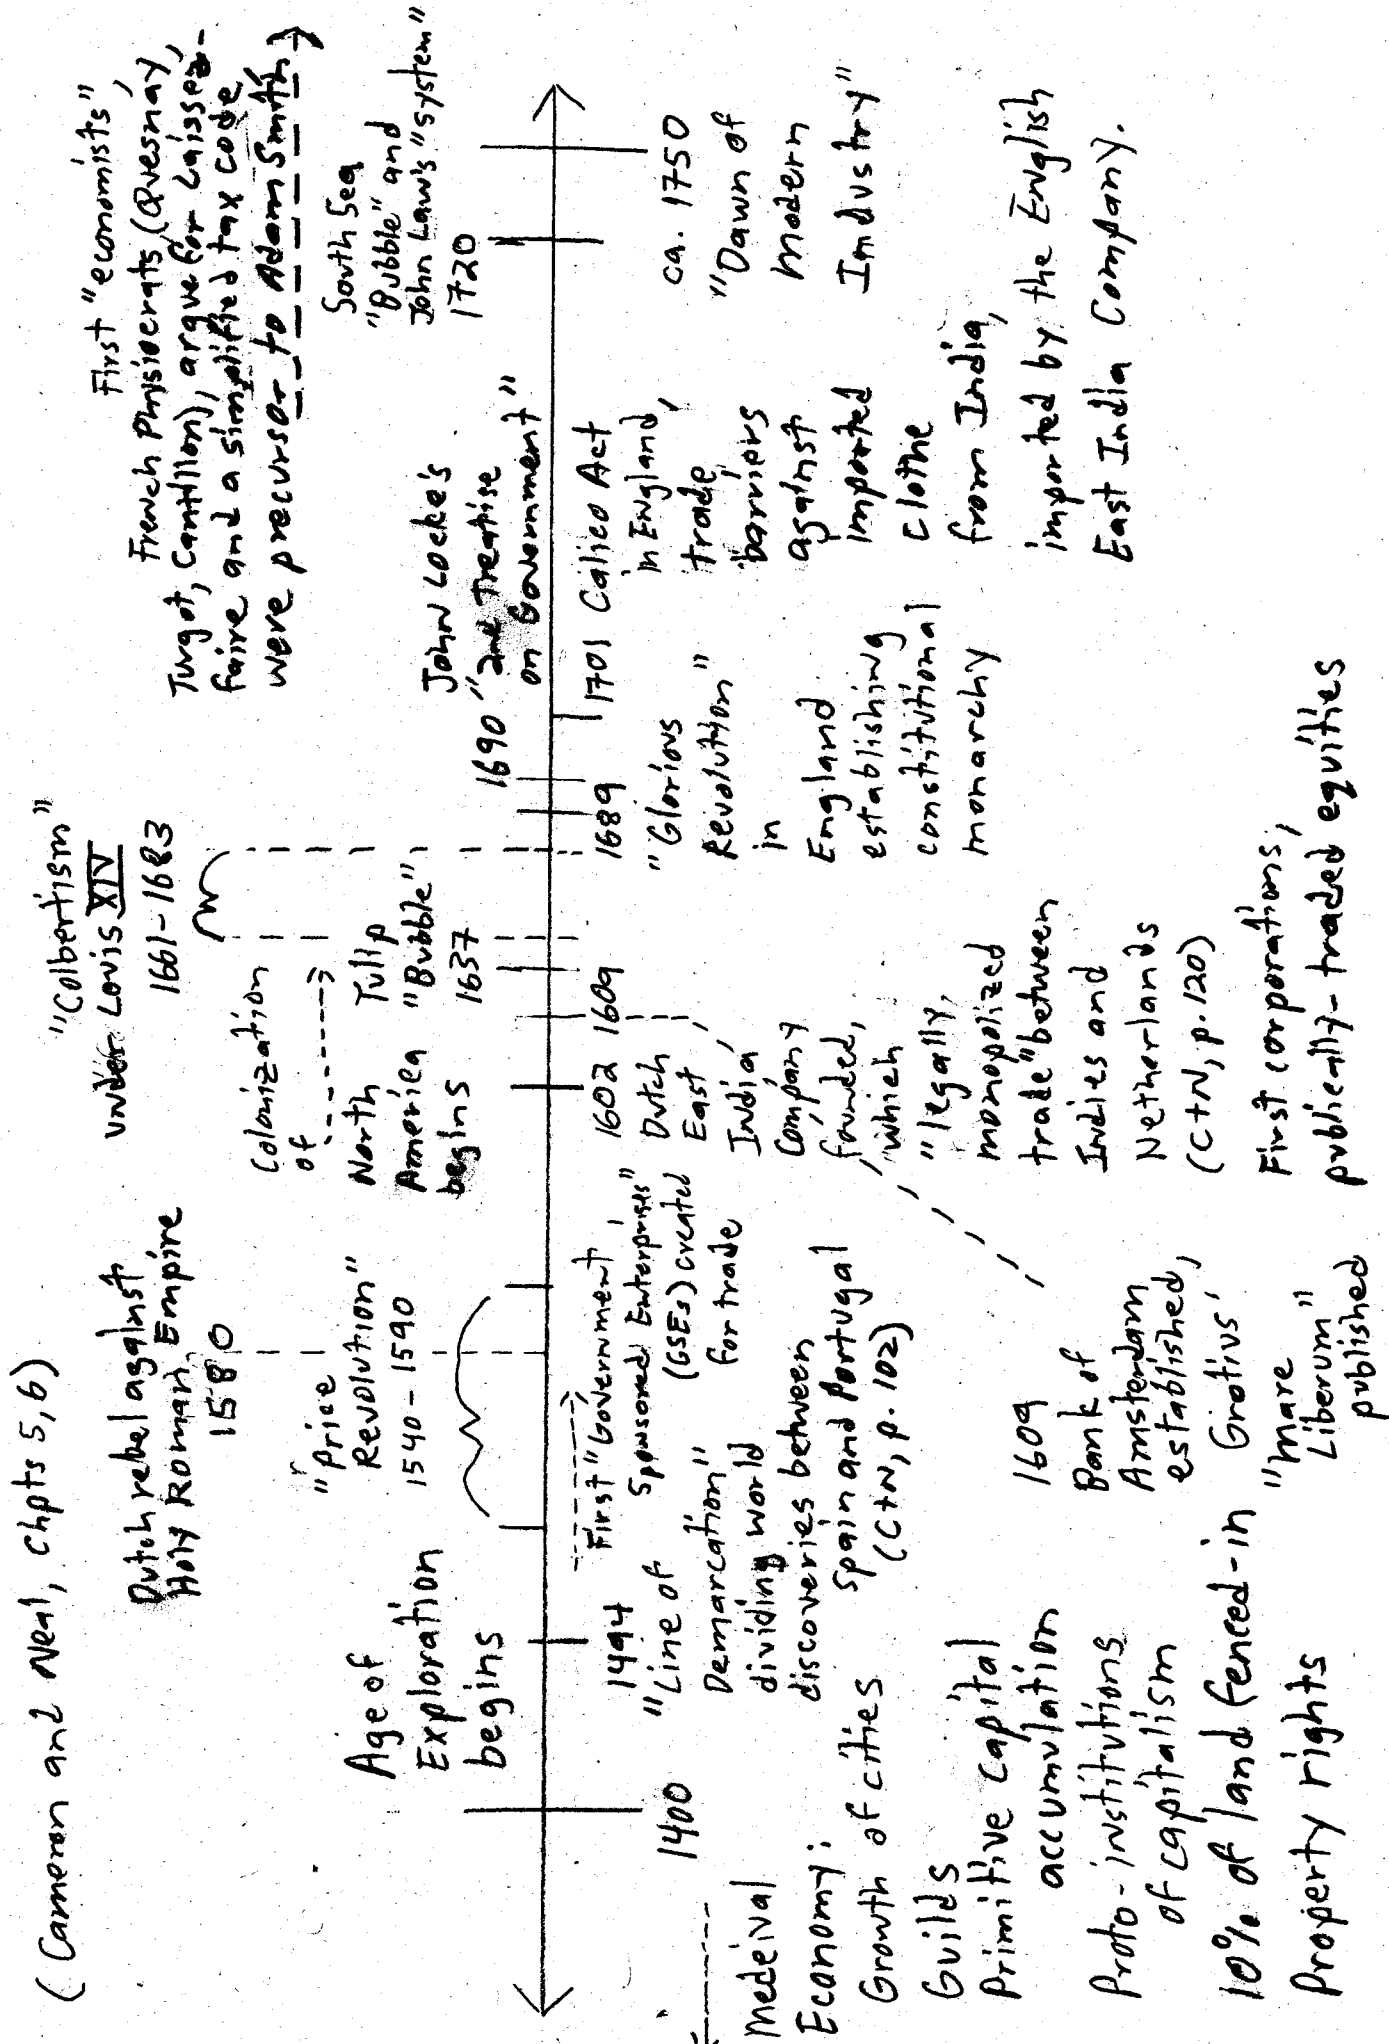 (Cameron and Neal, Chpts 5,6)
Dutch rebel against
Holy Roman Empire
1580
"Price
Revolution"
1540-1590
Age of
Exploration
begins
"Colbertism"
under Louis XIV
1661-1683
Colonization
of
North
America
begins
Tulip
"Bubble"
1637
First "economists"
French Physiocrats (Quesnay,
Turgot, Cantillon), argue for Laissez-
faire and a simplified tax code
were precursor to Adam Smith
John Locke's
1690 "2nd Treatise
on Government"
South Sea
"Bubble" and
John Law's "system"
1720
1400
Medeival
Economy:
Growth of cities
Guilds
Primitive capital
accumulation
Proto-institutions
of capitalism
10% of land fenced-in
Property rights
1494
"Line of
Demarcation"
dividing world
discoveries between
Spain and Portugal
(C+N, p. 102)
First "Government
Sponsored Enterprises"
(GSEs) created
for trade
1602
Dutch
East
India
Company
founded,
which
"legally
monopolized
trade" between
Indies and
Netherlands
(C+N, p. 120)
First corporations,
publically-traded equities
1609
1609
Bank of
Amsterdam
established,
Grotius'
"Mare
Liberum"
published
1689
"Glorious
Revolution"
in
England
establishing
constitutional
monarchy
1701 Calico Act
in England,
trade
barriers
against
imported
clothe
from India,
imported by the English
East India Company.
ca. 1750
"Dawn of
modern
Industry"